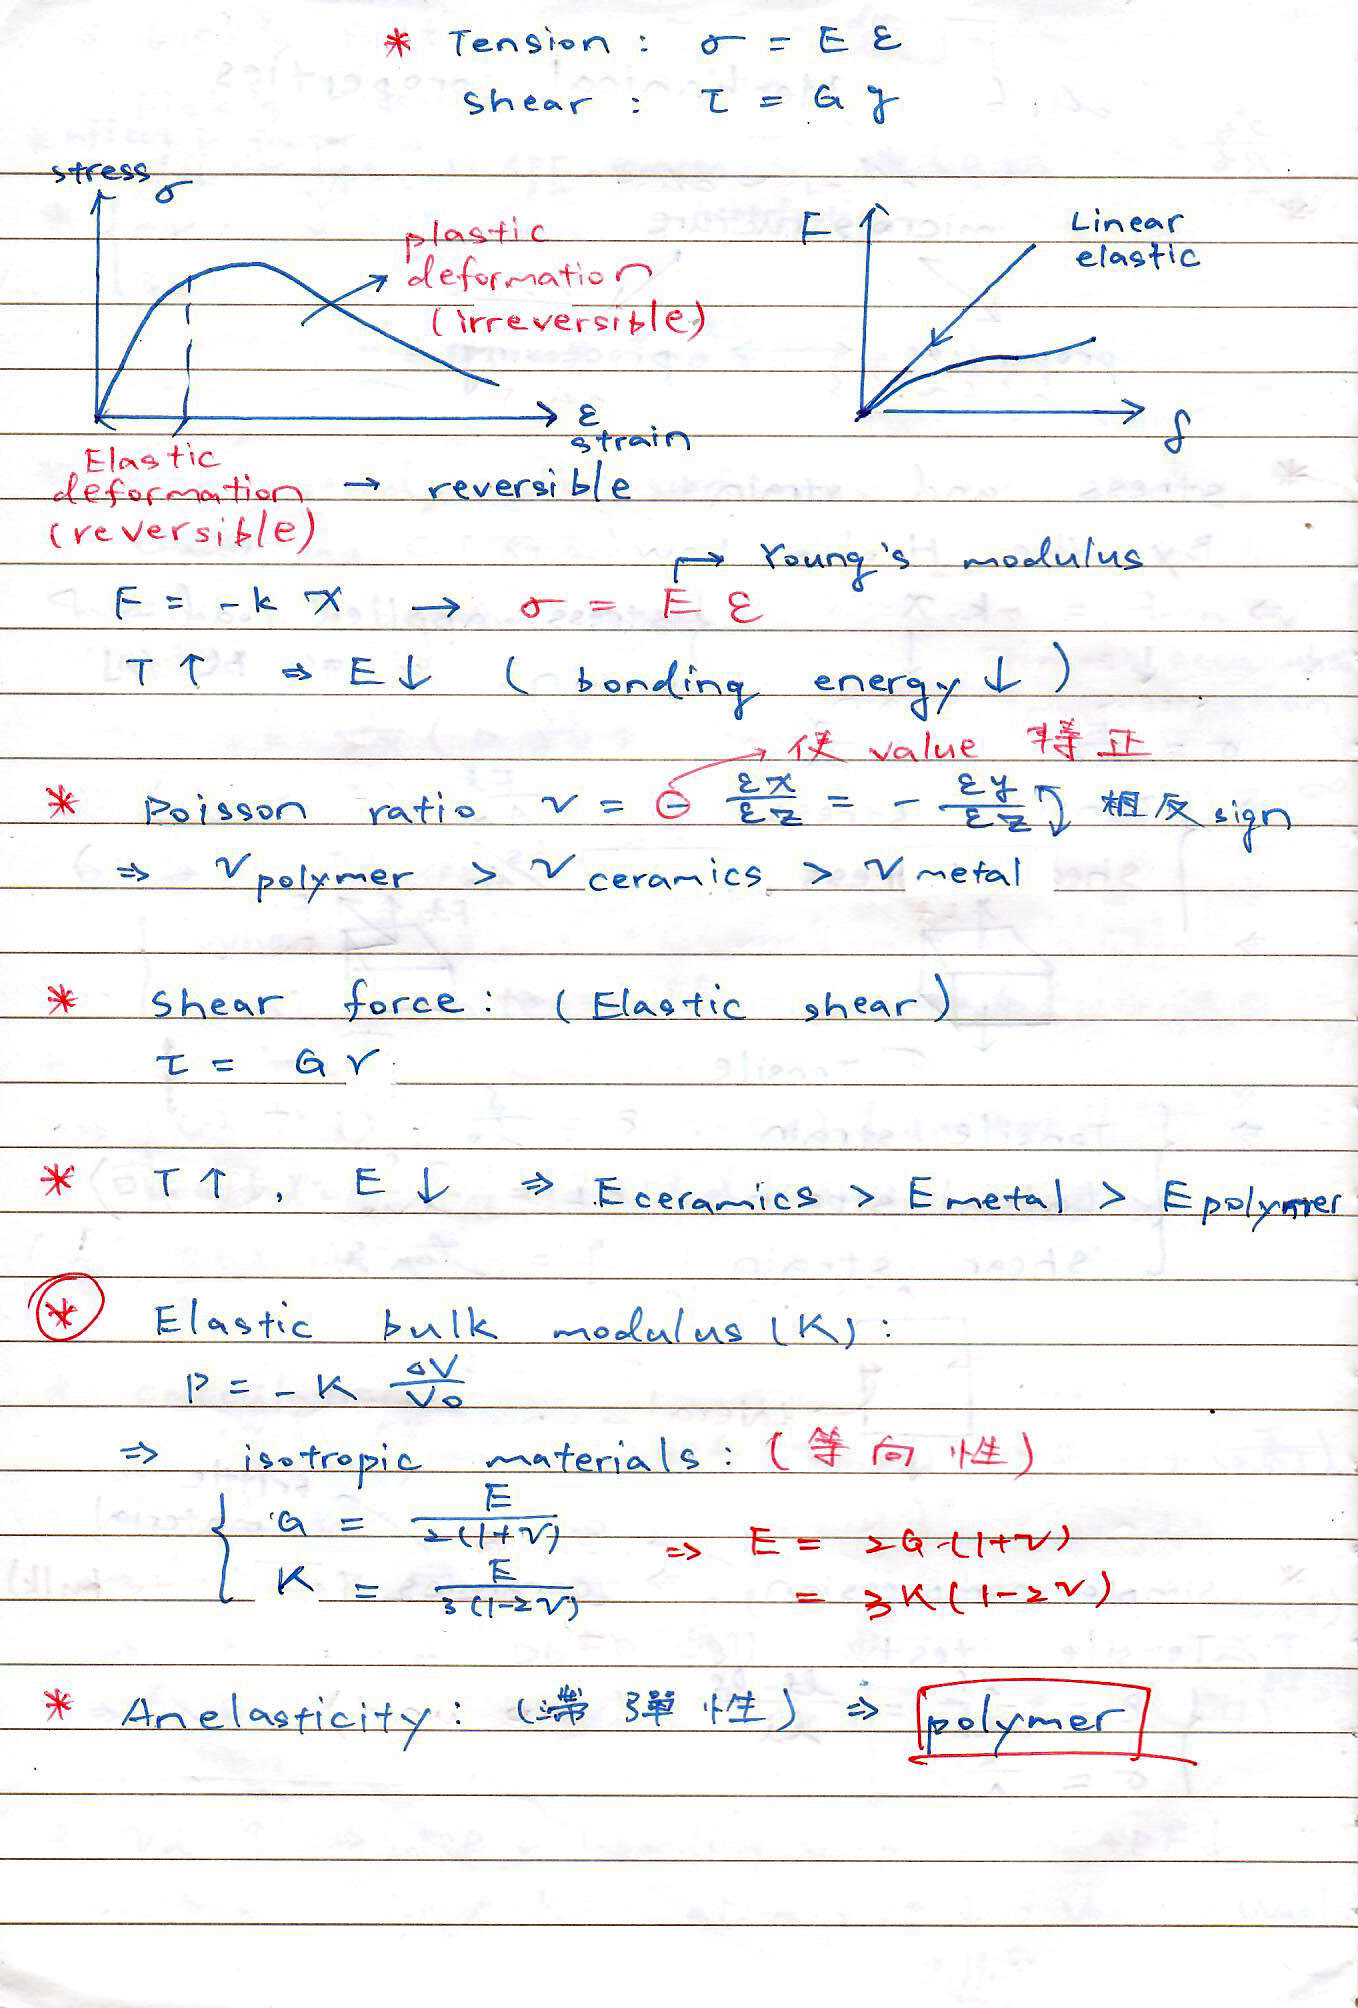 * Tension : σ = E ε
shear : τ = G γ
stress σ
plastic
deformation
(irreversible)
ε
strain
F
Linear
elastic
δ
Elastic
deformation → reversible
(reversible)
→ Young's modulus
F = - k x → σ = E ε
T ↑ ⇒ E ↓ ( bonding energy ↓ )
→ 使 value 為 正
* Poisson ratio ν = ⊖ εx/εz = - εy/εz 相反 sign
⇒ ν polymer > ν ceramics > ν metal
* shear force : ( Elastic shear )
τ = G γ
* T ↑ , E ↓ ⇒ E ceramics > E metal > E polymer
* Elastic bulk modulus (K) :
P = - K ΔV/V0
⇒ isotropic materials : ( 等 向 性 )
{ G = E/2(1+ν) ⇒ E = 2G (1+ν)
K = E/3(1-2ν) = 3K (1-2ν)
* Anelasticity : ( 滯 彈 性 ) ⇒ polymer